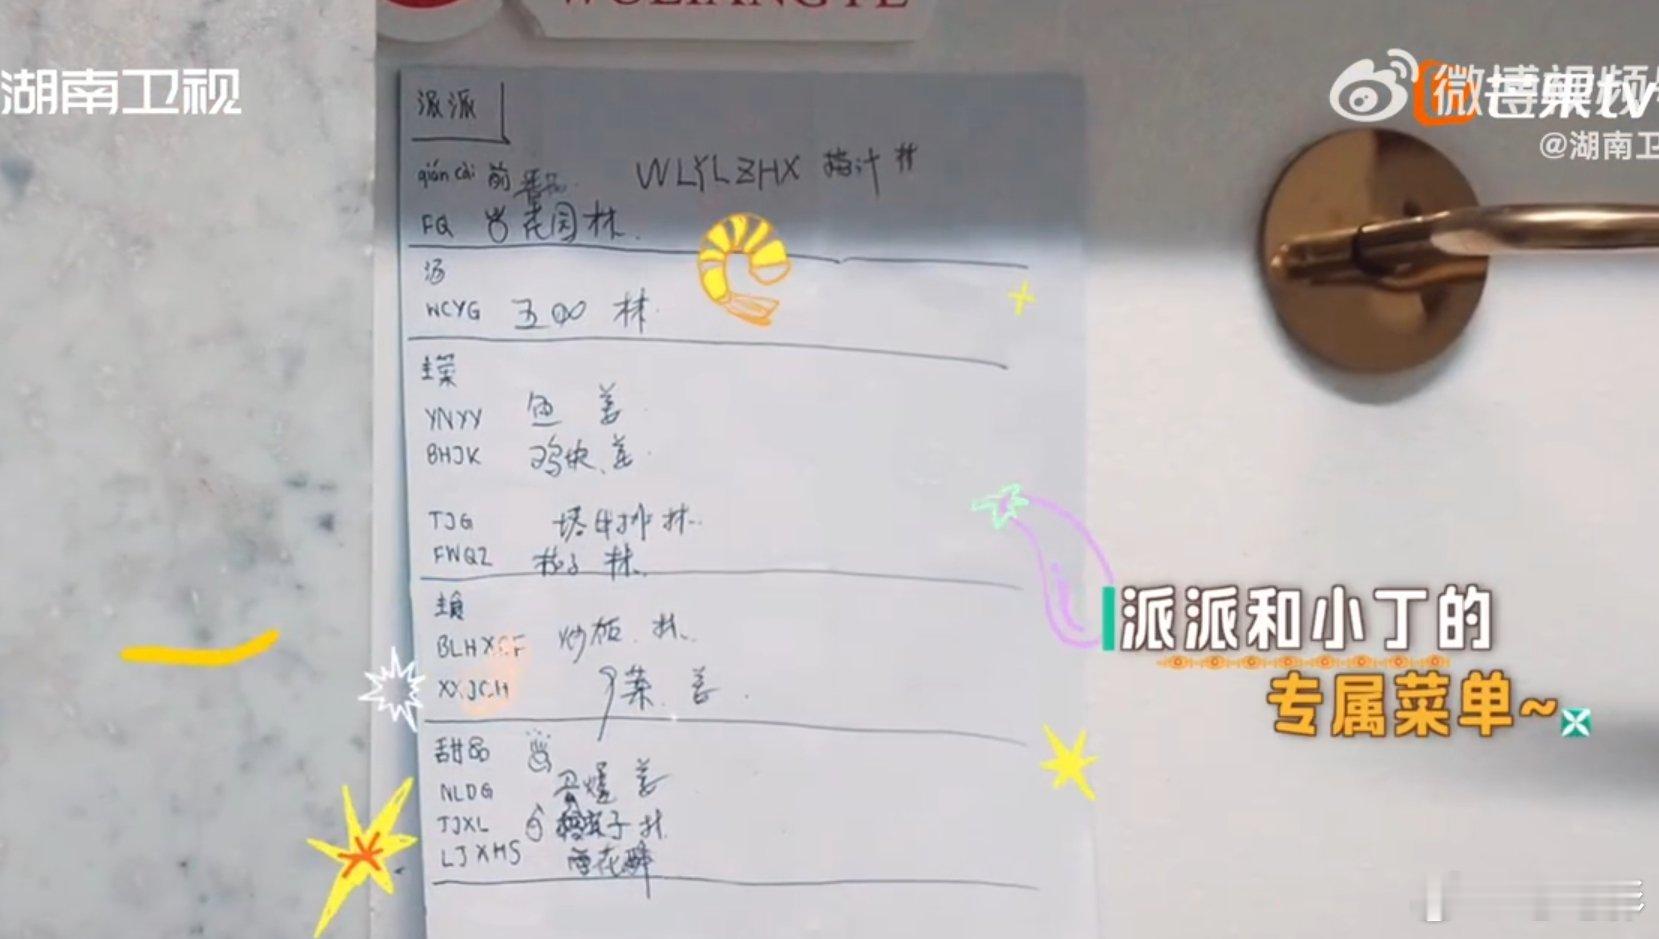 WULIANGYE
湖南卫视
微博视频号
芒果tv
@湖南卫
派派
qián cài 前 WLYLZHX 梅汁 林
FQ 花园 林
汤
WCYG 五 林
主菜
YNYY 鱼 姜
BHJK 鸡块 姜
TJG 塔牛排 林
FWQZ 茄子 林
主食
BLHXCF 炒饭 林
XXJCH 菜 姜
甜品
NLDG 蛋糕 姜
TJXL 林
LJXMS 雪花酥
派派和小丁的
专属菜单~